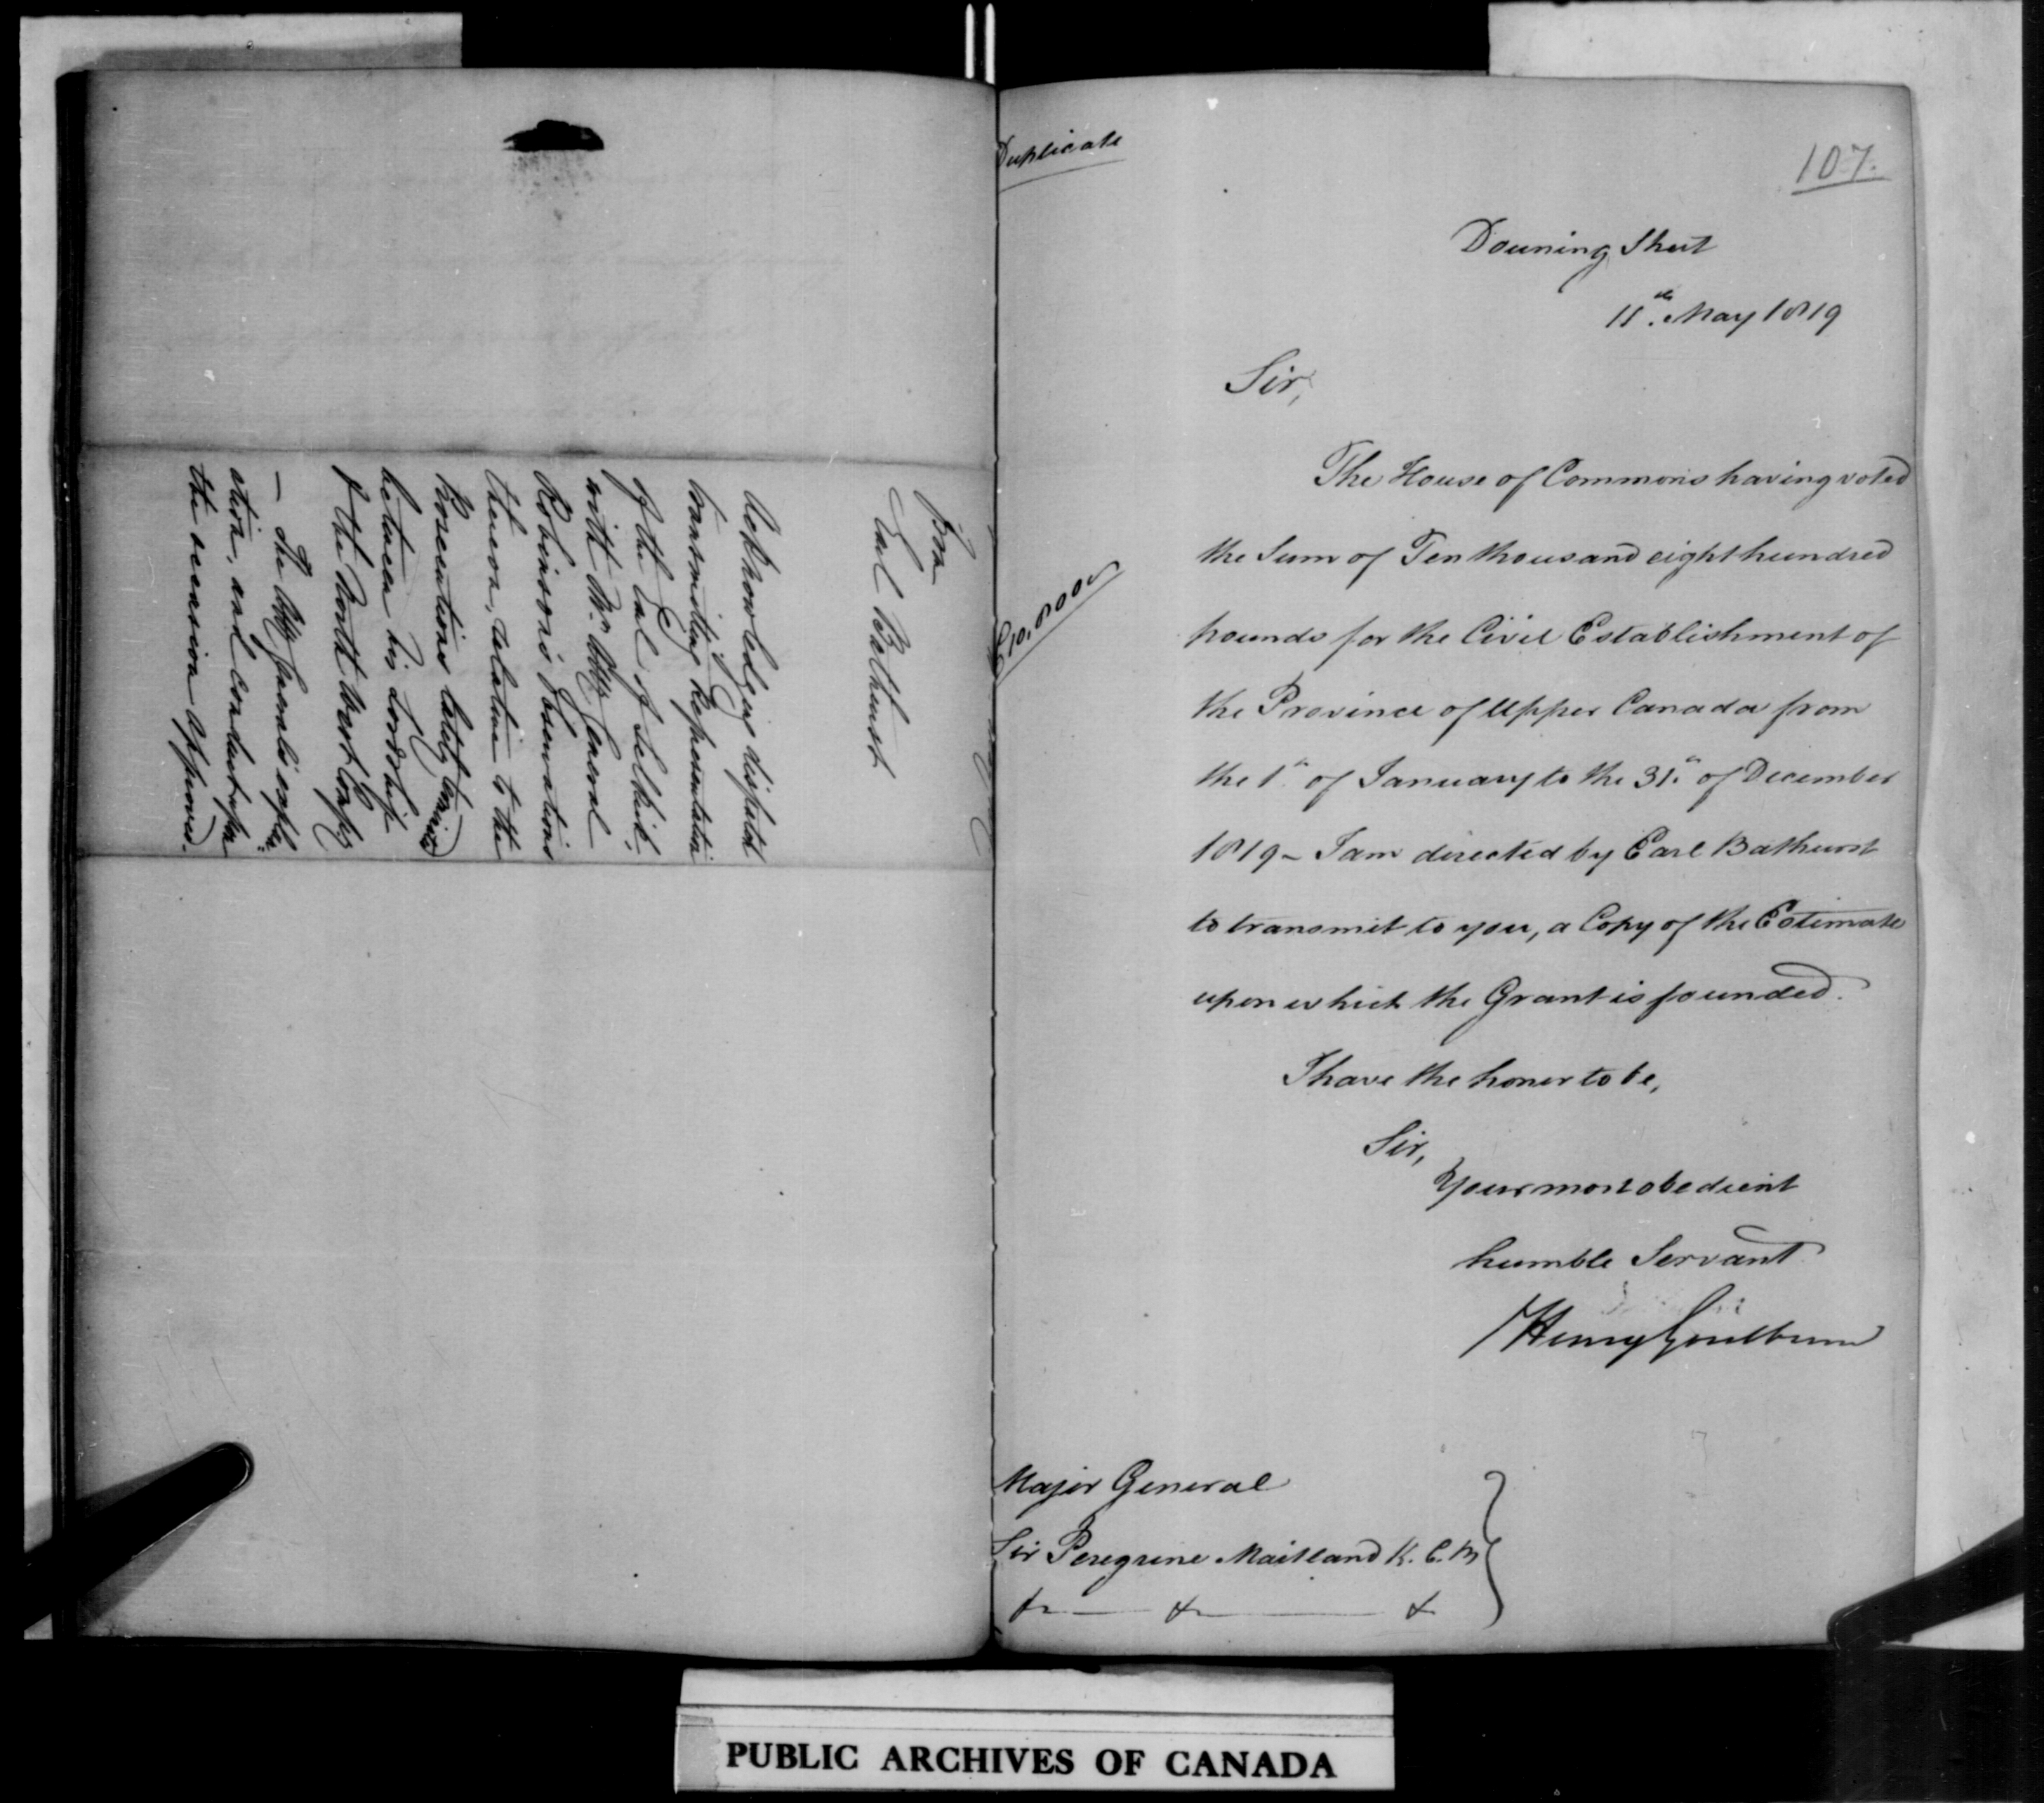 From
Earl Bathurst
Acknowledging dispatch
transmitting Representation
of the Earl of Selkirk
with Mr. Atty General
Robinson's Observations
thereon, relative to the
Prosecutions lately carried
between his Lordship
& the North West Compy
— The Atty General's explan
ation, and conduct upon
the occasion approved.
Duplicate
107.
Downing Street
11th May 1819
Sir,
The House of Commons having voted
the Sum of Ten thousand eight hundred
£10,800
pounds for the Civil Establishment of
the Province of Upper Canada from
the 1st of January to the 31st of December
1819 - I am directed by Earl Bathurst
to transmit to you, a Copy of the Estimate
upon which the Grant is founded.
I have the honor to be,
Sir,
Your most obedient
humble Servant
Henry Goulburn
Major General
Sir Peregrine Maitland K. C. B
&c — &c — &
PUBLIC ARCHIVES OF CANADA